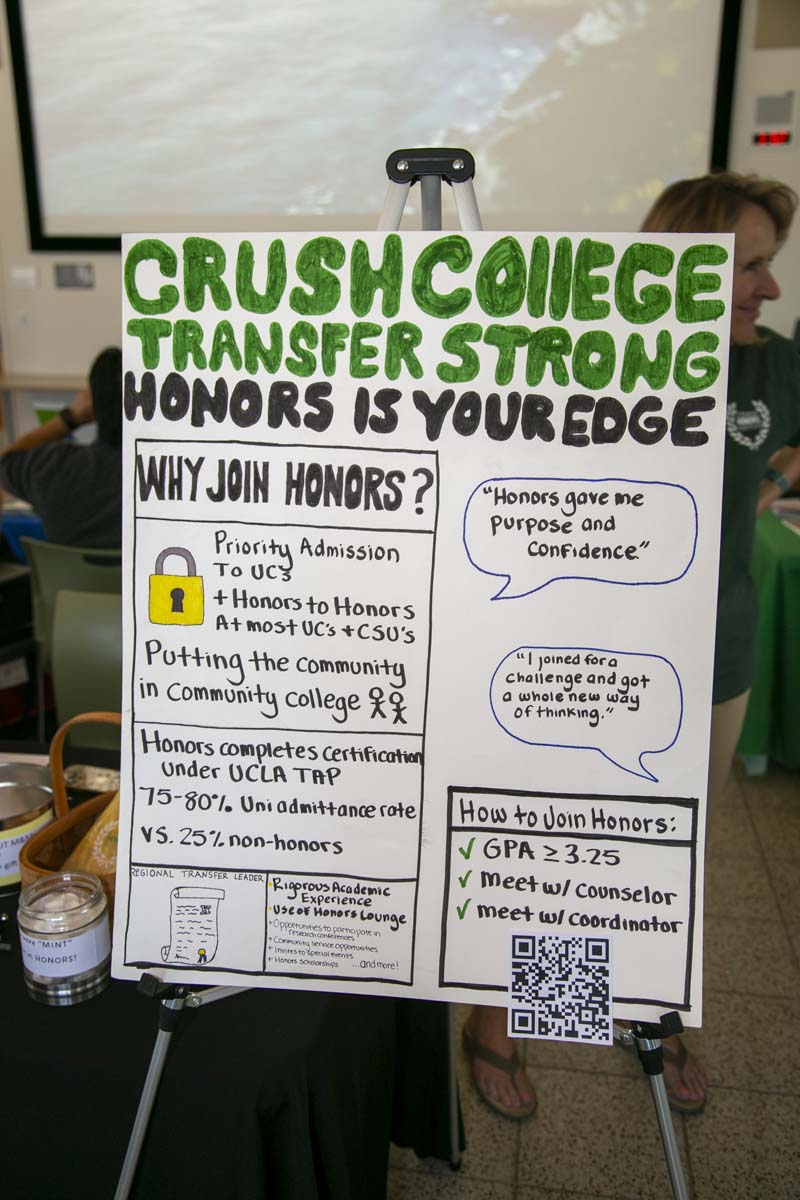 CRUSH COllEGE
TRANSFER STRONG
HONORS IS YOUR EDGE
WHY JOIN HONORS?
Priority Admission
To UCs
+ Honors to Honors
At most UC's + CSU's
Putting the community
in Community college
Honors completes certification
under UCLA TAP
75-80% Uni admittance rate
vs. 25% non-honors
REGIONAL TRANSFER LEADER
Rigorous Academic
Experience
Use of Honors Lounge
+ Opportunities to participate in
research conferences
+ Community service opportunities
+ Invites to special events
+ Honors scholarships ...and more!
"Honors gave me
purpose and
confidence."
"I joined for a
challenge and got
a whole new way
of thinking."
How to Join Honors:
✓ GPA ≥ 3.25
✓ meet w/ counselor
✓ meet w/ coordinator
"MINT"
in HONORS!